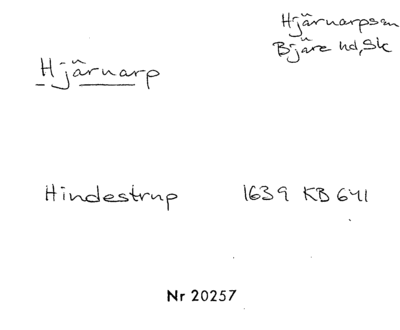 Hjärnarpssn
Bjäre hd, Sk
Hjärnarp
Hindestrup 1639 KB 641
Nr 20257